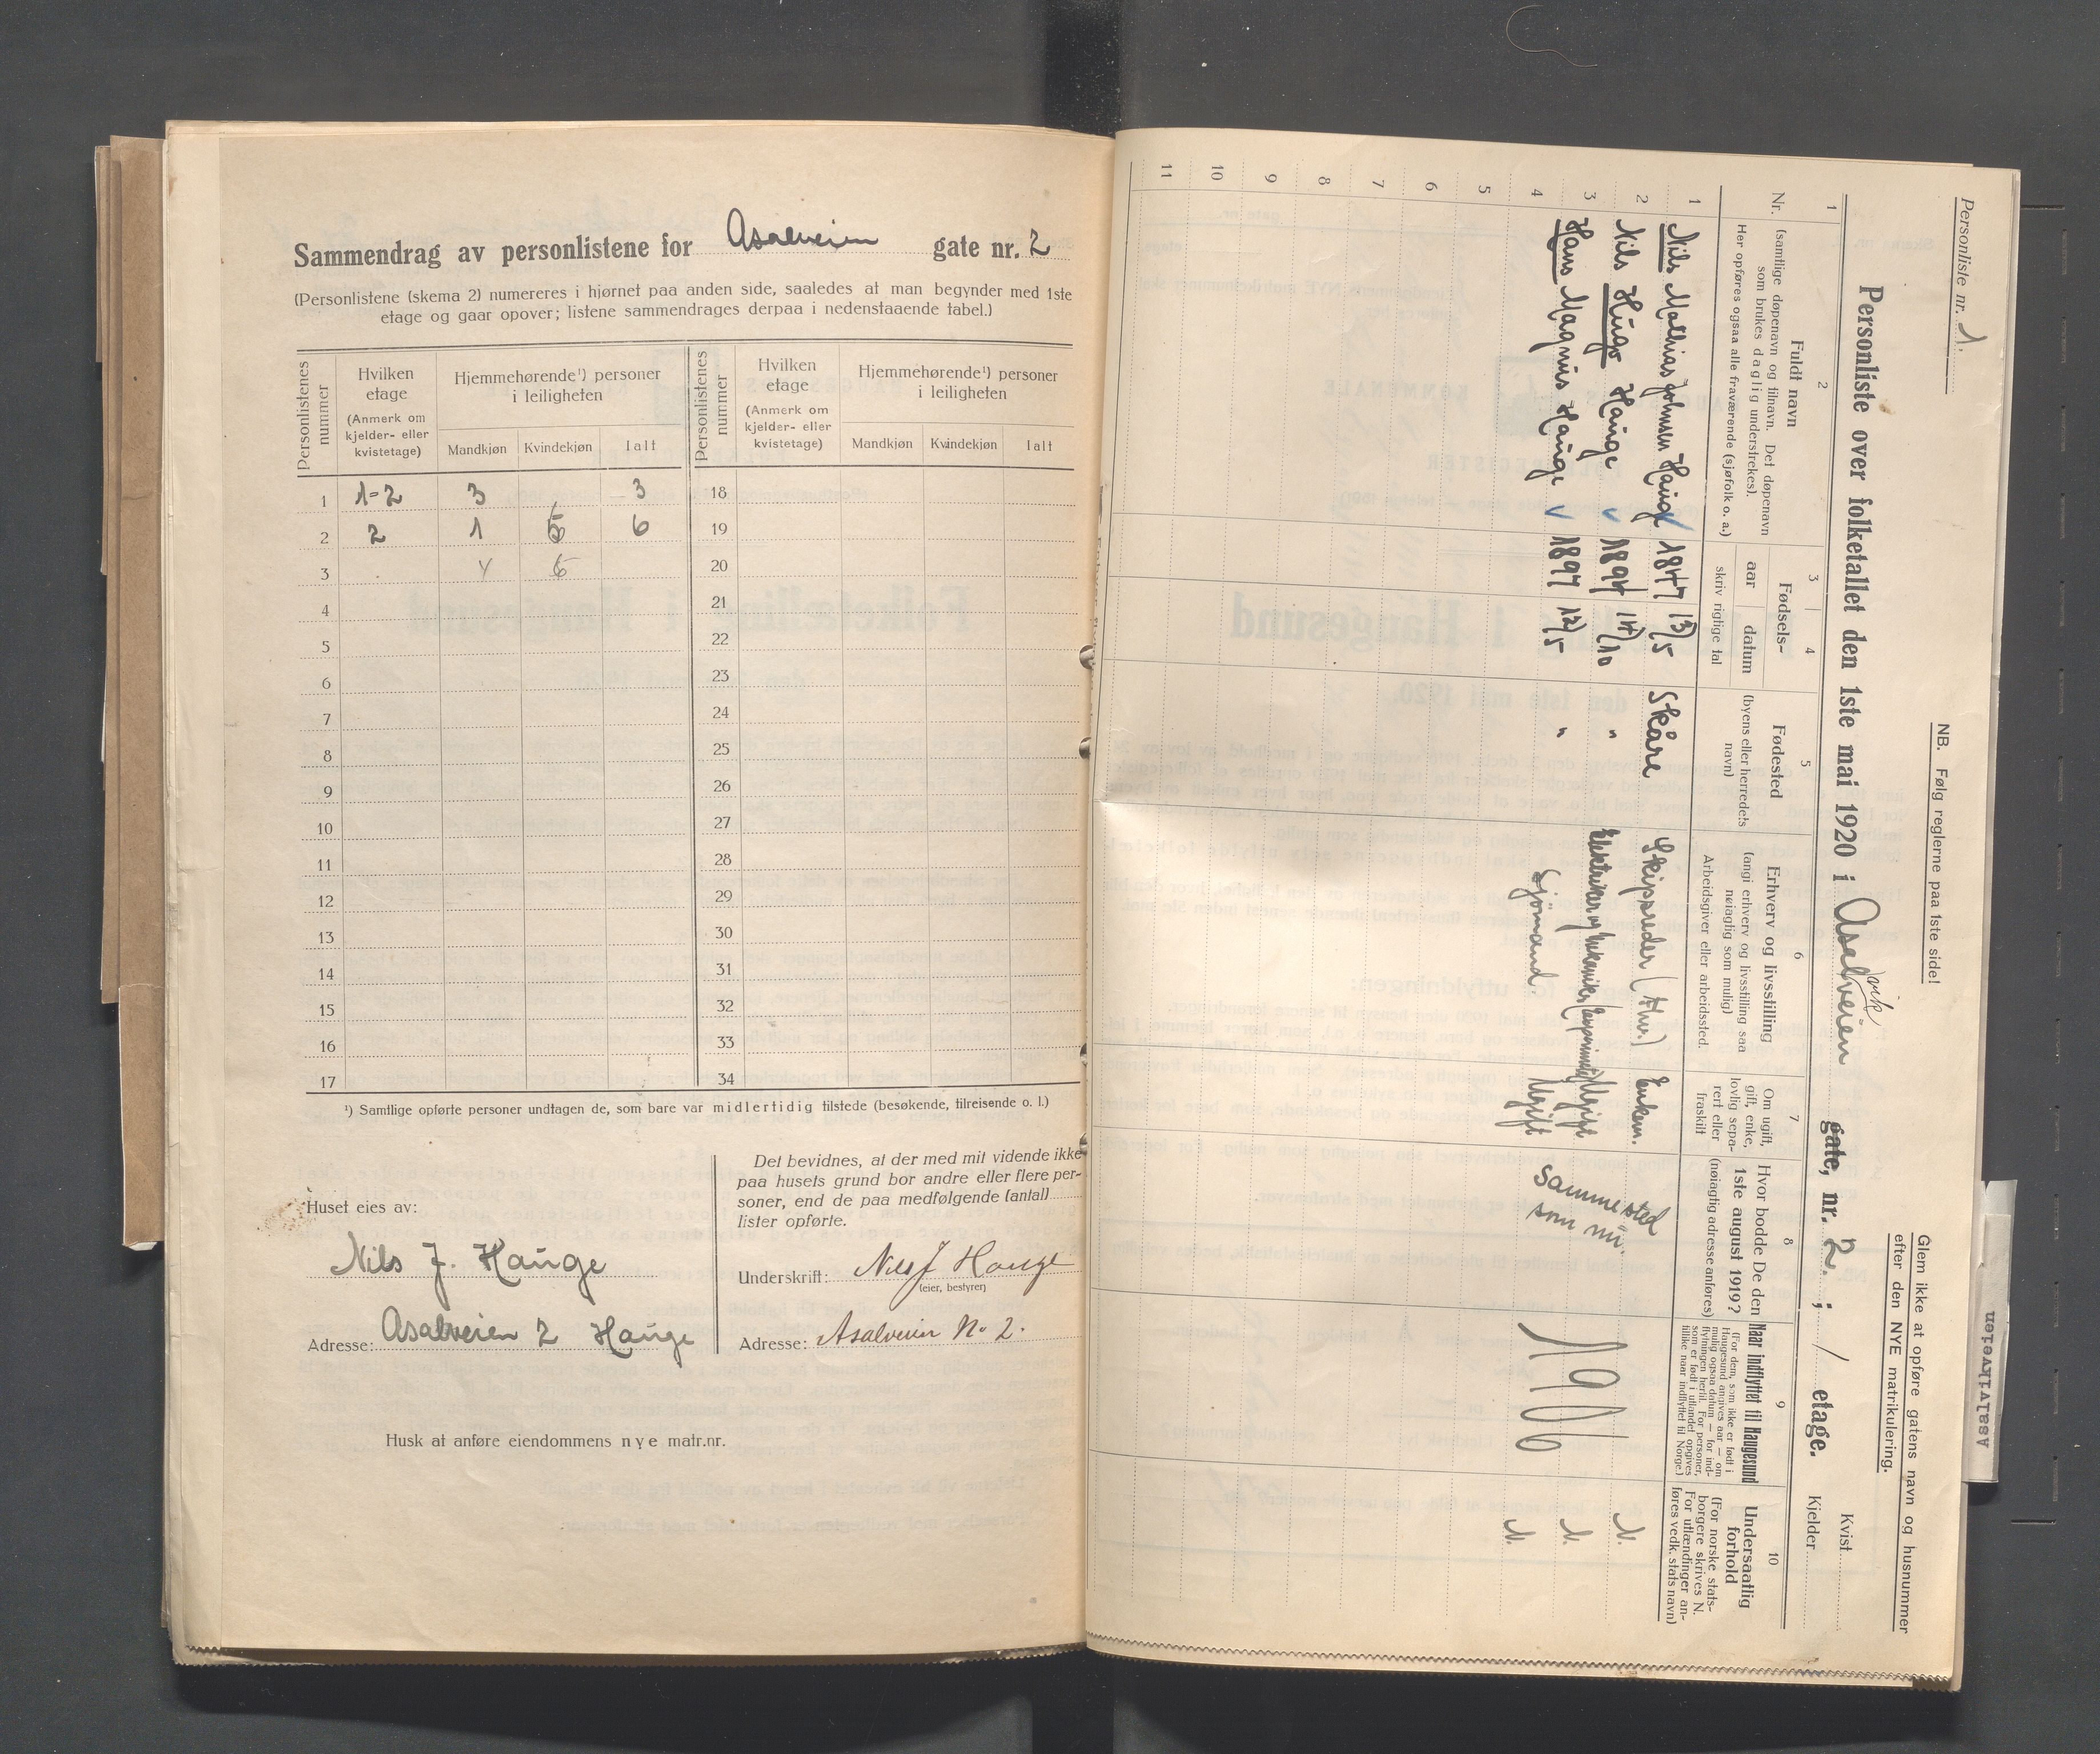 Sammendrag av personlistene for Asalveien gate nr. 2
(Personlistene (skema 2) numereres i hjørnet paa anden side, saaledes at man begynder med 1ste
etage og gaar opover; listene sammendrages derpaa i nedenstaaende tabel.)
Personlistenes nummer | Hvilken etage (Anmerk om kjelder- eller kvistetage) | Hjemmehørende¹) personer i leiligheten | Mandkjøn | Kvindekjøn | Ialt
Personlistenes nummer | Hvilken etage (Anmerk om kjelder- eller kvistetage) | Hjemmehørende¹) personer i leiligheten | Mandkjøn | Kvindekjøn | Ialt
1 1-2 3 3 18
2 2 1 5 6 19
3 4 5 20
4 21
5 22
6 23
7 24
8 25
9 26
10 27
11 28
12 29
13 30
14 31
15 32
16 33
17 34
¹) Samtlige opførte personer undtagen de, som bare var midlertidig tilstede (besøkende, tilreisende o. l.)
Huset eies av:
Nils J. Hauge
Adresse: Asalveien 2 Hauge
Det bevidnes, at der med mit vidende ikke
paa husets grund bor andre eller flere per-
soner, end de paa medfølgende (antal)
lister opførte.
Underskrift: Nils J Hauge
(eier, bestyrer)
Adresse: Asalveien No 2.
Husk at anføre eiendommens nye matr.nr.
Personliste nr. 1.
NB. Følg reglerne paa 1ste side!
Glem ikke at opføre gatens navn og husnummer
efter den NYE matrikulering.
vik
Personliste over folketallet den 1ste mai 1920 i Asalveien gate, nr. 2. ; 1 etage.
Kvist
Kjelder
1 2 3 4 5 6 7 8 9 10
Nr.
Fuldt navn
(samtlige døpenavn og tilnavn. Det døpenavn
som brukes daglig understrekes).
Her opføres ogsaa alle fraværende (sjøfolk o. a.)
Fødsels-
aar | datum
skriv rigtige tal
Fødested
(byens eller herredets
navn)
Erhverv og livsstilling
(angi erhverv og livsstilling saa
nøiagtig som mulig)
Arbeidsgiver eller arbeidssted.
Om ugift,
gift, enke,
lovlig sepa-
rert eller
fraskilt
Hvor bodde De den
1ste august 1919?
(nøiagtig adresse anføres)
Naar indflyttet til Haugesund
(For dem, som ikke er født i
Haugesund angives aar – om
mulig ogsaa datum – for ind-
flytningen hertil. For personer,
som er født i utlandet opgives
tillike naar indflyttet til Norge.)
Undersaatlig
forhold
(For norske stats-
borgere skrives N.
For utlændinger an-
føres vedk. stats navn)
1 Nils Mathias Johnsen Hauge 1847 13/5 Skåre Skipsreder Enkem. N.
2 Nils Hugo Hauge 1894 14/10 " Elektriker og mekaniker Ugift N.
3 Hans Magnus Hauge 1897 12/5 " Sjömand Ugift N.
sammested
som nu.
1906
4
5
6
7
8
9
10
11
Asalvikveien